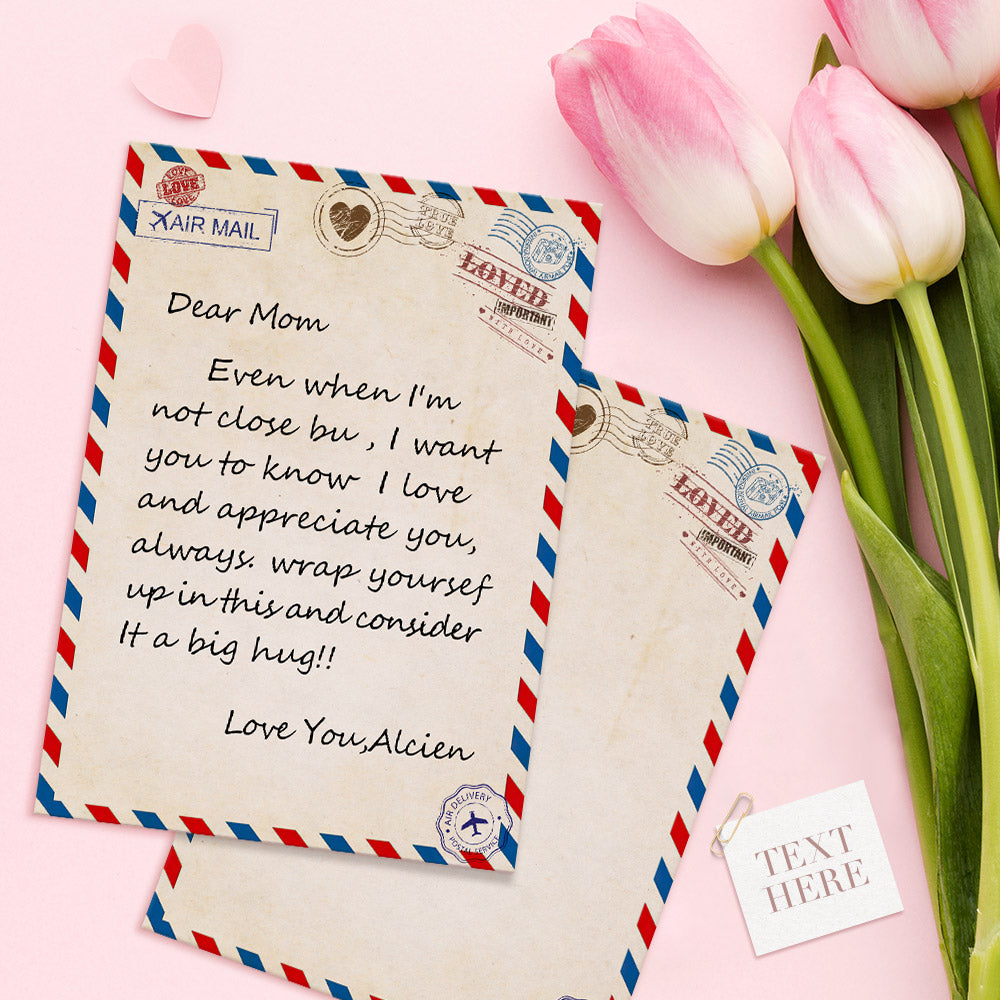 LOVE
LOVE
LOVE
AIR MAIL
TRUE
LOVE
LOVED
IMPORTANT
WITH LOVE
Dear Mom
Even when I'm
not close bu , I want
you to know I love
and appreciate you,
always. wrap yoursef
up in this and consider
It a big hug!!
Love You,Alcien
AIR DELIVERY
POSTAL SERVICE
TRUE
LOVE
LOVED
IMPORTANT
WITH LOVE
TEXT
HERE